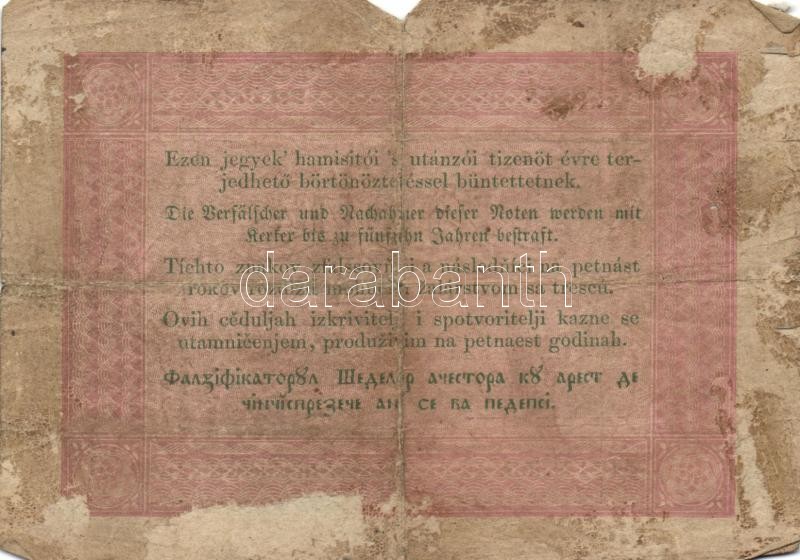 Ezen jegyek' hamisítói 's utánzói tizenöt évre ter-
jedhető börtönöztetéssel büntettetnek.
Die Verfälscher und Nachahmer dieser Noten werden mit
Kerker bis zu fünfzehn Jahren bestraft.
Tíchto znakov a na petnást
rokov sa trescú.
Ovih cĕduljah izkrivitelji i spotvoritelji kazne se
utamničenjem, produživim na petnaest godinah.
Фалзіфікаторꙋл Шеделор ачестора кꙋ арест де
чінчіспрезече ані се ва педепсі.
darabanth